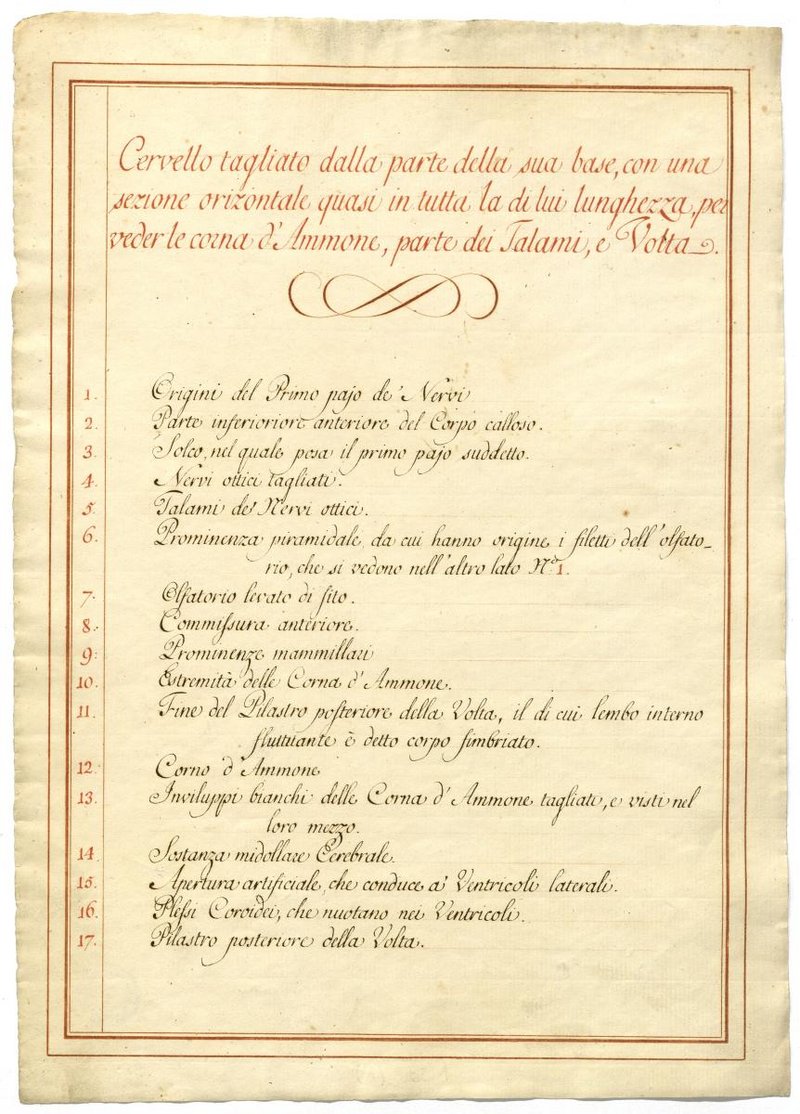 Cervello tagliato dalla parte della sua base, con una
sezione orizontale quasi in tutta la di lui lunghezza, per
veder le corna d'Ammone, parte dei Talami, e Volta.
1. Origini del Primo pajo de' Nervi
2. Parte inferioriore anteriore del Corpo calloso.
3. Solco, nel quale posa il primo pajo suddetto.
4. Nervi ottici tagliati.
5. Talami de' Nervi ottici.
6. Prominenza piramidale, da cui hanno origine i filetti dell'olfato-
rio, che si vedono nell'altro lato No. 1.
7. Olfatorio levato di sito.
8. Commissura anteriore.
9: Prominenze mammillari
10. Estremità delle Corna d'Ammone.
11. Fine del Pilastro posteriore della Volta, il di cui lembo interno
fluttuante è detto corpo fimbriato.
12. Corno d'Ammone
13. Inviluppi bianchi delle Corna d'Ammone tagliati, e visti nel
loro mezzo.
14. Sostanza midollare Cerebrale.
15. Apertura artificiale, che conduce a' Ventricoli laterali.
16. Plessi Coroidei, che nuotano nei Ventricoli.
17. Pilastro posteriore della Volta.